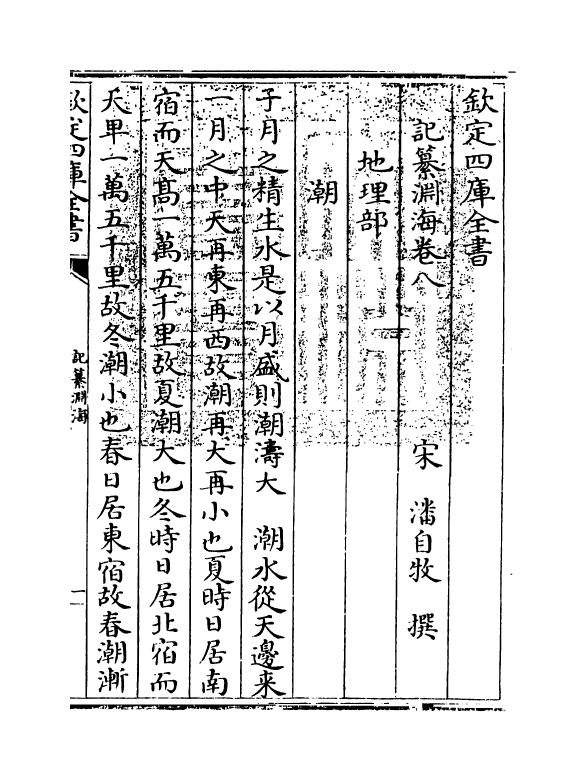 欽定四庫全書
記纂淵海卷八
宋 潘自牧 撰
地理部
潮
子月之精生水是以月盛則潮濤大 潮水從天邊来
一月之中天再東再西故潮再大再小也夏時日居南
宿而天髙一萬五千里故夏潮大也冬時日居北宿而
天早一萬五千里故冬潮小也春日居東宿故春潮漸
欽定四庫全書
記纂淵海
一